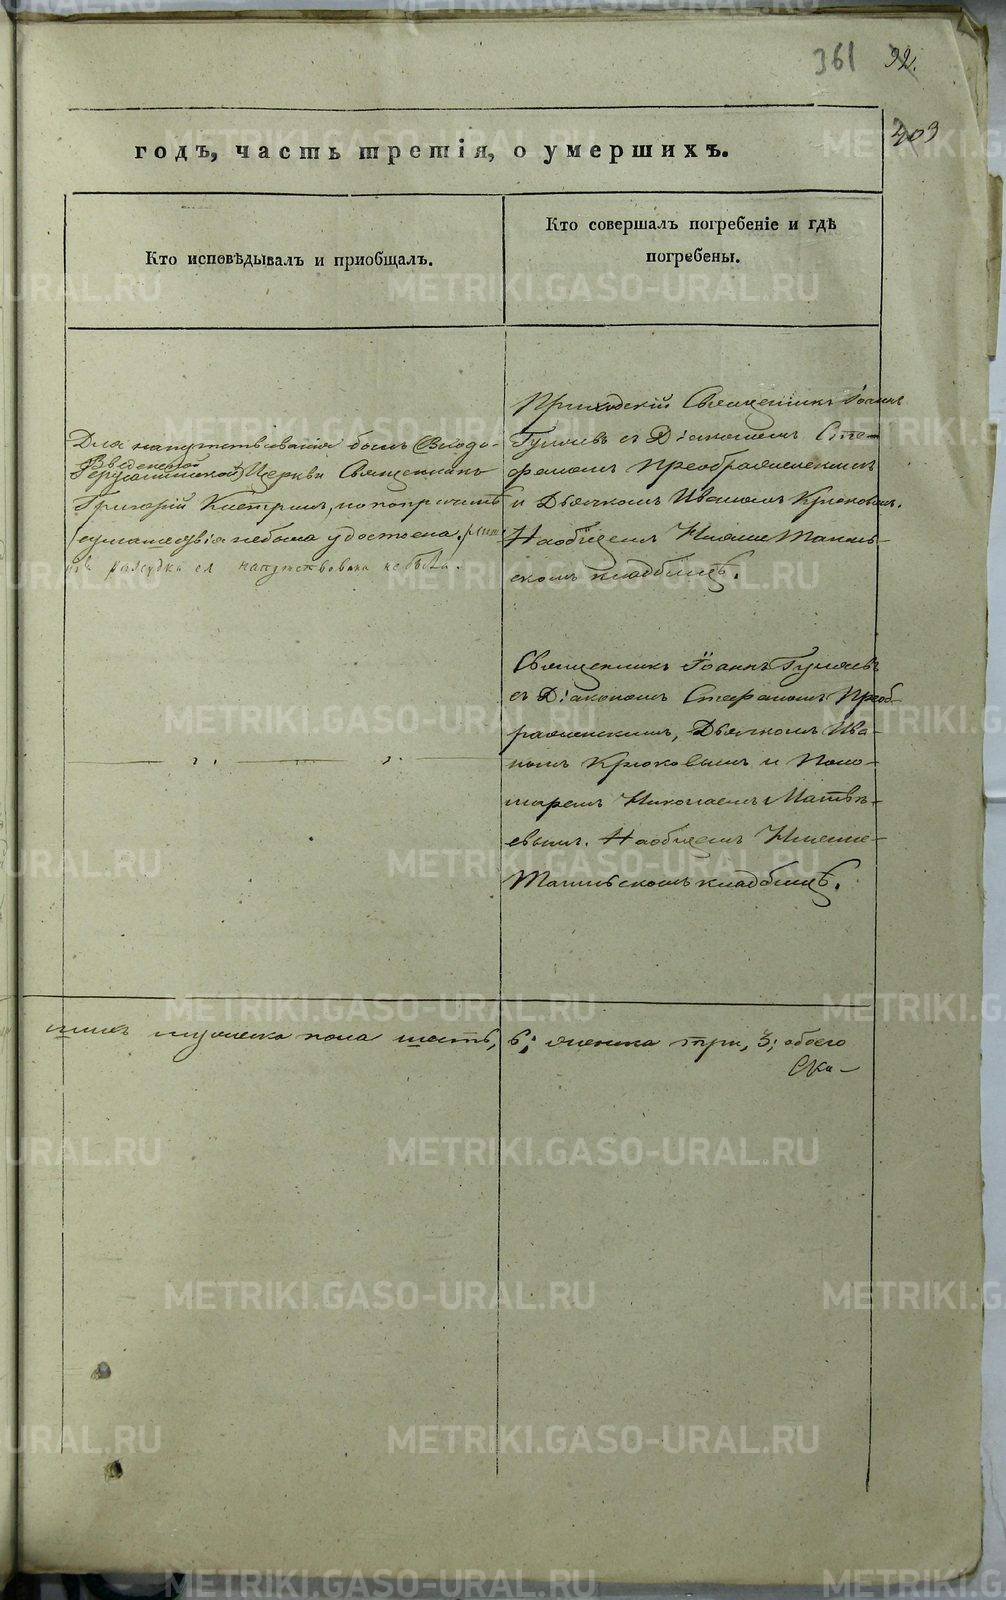 361 92.
403
годъ, часть третія, о умершихъ.
Кто исповѣдывалъ и приобщалъ.
Кто совершалъ погребеніе и гдѣ
погребены.
Для напутствованія былъ Входо-
Введенской
Іерусалимской Церкви Священникъ
Григорій, но по причинѣ
сумашедствія небыла удостоена.
разсудка ея напутствована не была.
Приходскій Священникъ Іоаннъ
съ Діакономъ Сте-
фаномъ Преображенскимъ
и Дьячкомъ Иваномъ Крюковымъ.
На общемъ Нижне Тагиль-
скомъ кладбищѣ.
Священникъ Іоаннъ
съ Діакономъ Стефаномъ Преоб-
раженскимъ, Дьячкомъ Ива-
номъ Крюковымъ и Поно-
маремъ Николаемъ Матвѣ-
евымъ. На общемъ Нижне-
Тагильскомъ кладбищѣ.
мужеска пола шесть, 6; женска три, 3; обоего